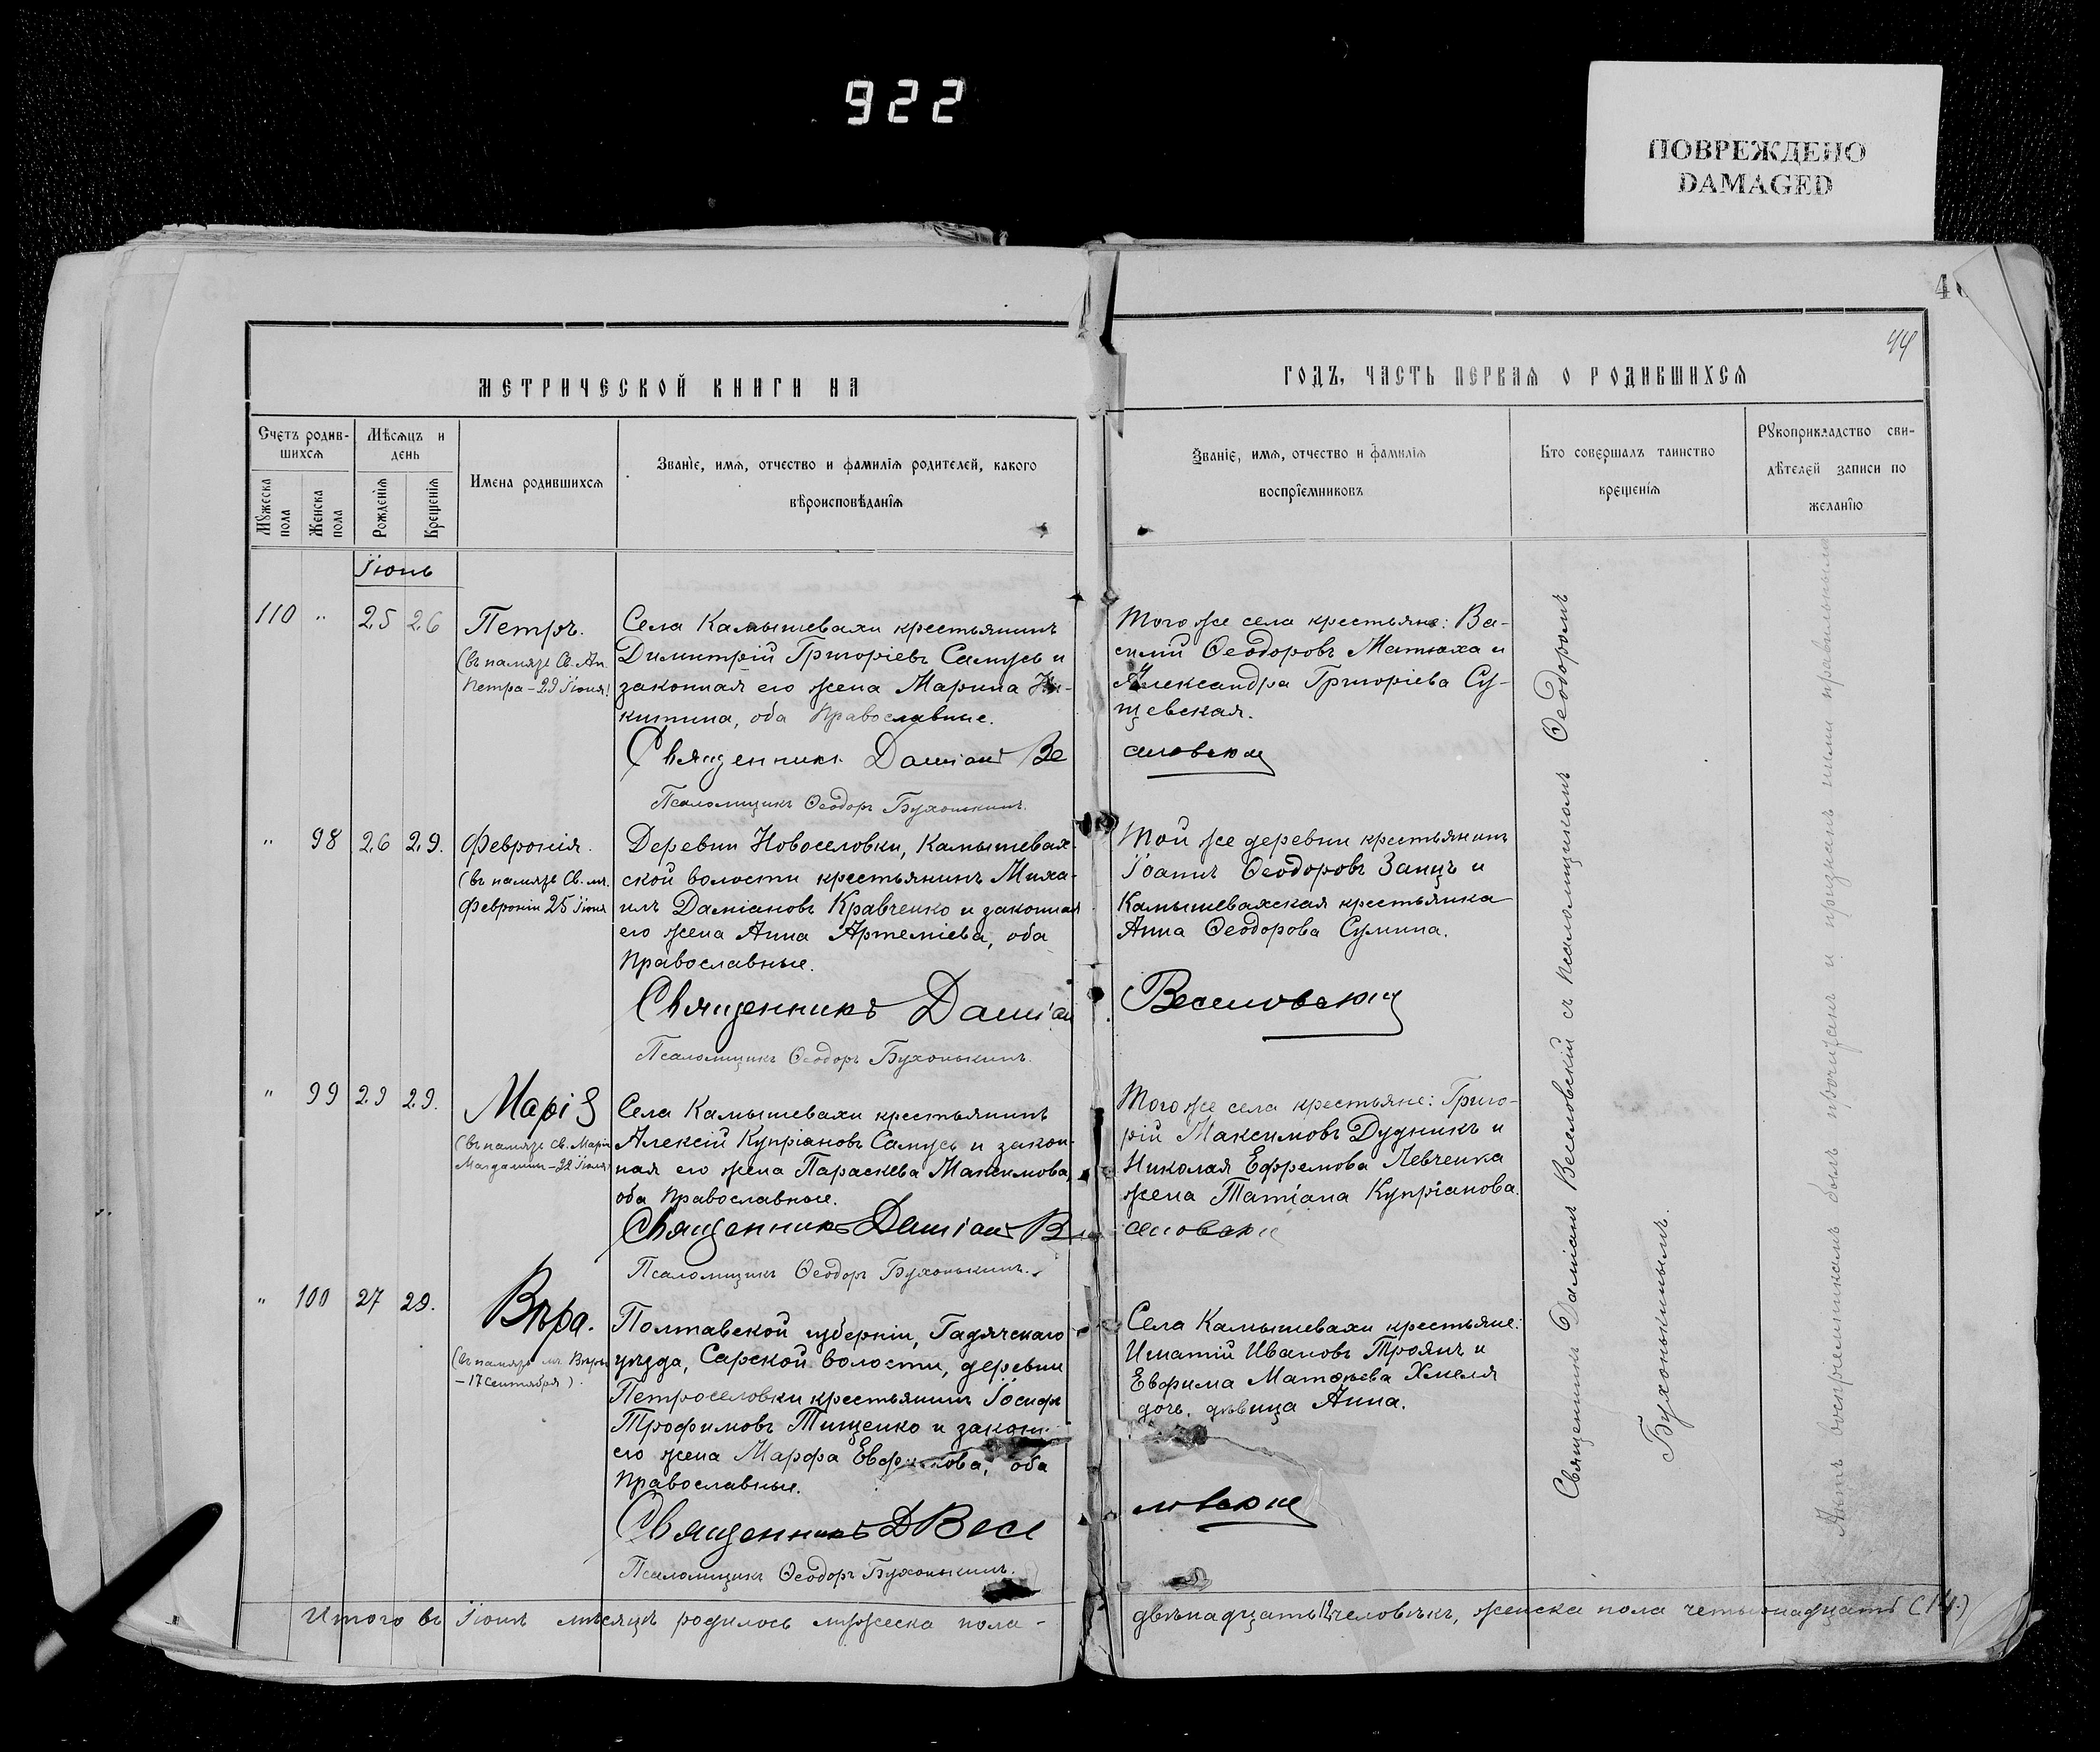 922
ПОВРЕЖДЕНО
DAMAGED
44
МЕТРИЧЕСКОЙ КНИГИ НА
ГОДЪ, ЧАСТЬ ПЕРВАЯ О РОДИВШИХСЯ
Счетъ родив-
шихся
Мужеска
пола
Женска
пола
Мѣсяцъ и
день
Рожденія
Крещенія
Имена родившихся
Званіе, имя, отчество и фамилія родителей, какого
вѣроисповѣданія
Званіе, имя, отчество и фамилія
воспріемниковъ
Кто совершалъ таинство
крещенія
Рукоприкладство сви-
дѣтелей записи по
желанію
Іюнь
110 " 25 26
Петръ.
(въ память Св. Ап.
Петра – 29 Іюня)
Села Камышевахи крестьянинъ
Димитрій Григоріевъ Самусь и
законная его жена Марина Ни-
китина, оба Православные.
Священникъ Даміанъ Ве
Псаломщикъ Ѳеодоръ Бухонькинъ.
Того же села крестьяне: Ва-
силій Ѳеодоровъ Матюха и
Александра Григоріева Су-
щевская.
селовскій
" 98 26 29.
Февронія.
(въ память Св. мч.
Февроніи 25 Іюня
Деревни Новоселовки, Камышевах-
ской волости крестьянинъ Миха-
илъ Даміановъ Кравченко и законная
его жена Анна Артеміева, оба
Православные.
Священникъ Даміан
Псаломщикъ Ѳеодоръ Бухонькинъ.
Той же деревни крестьянинъ
Іоаннъ Ѳеодоровъ Заицъ и
Камышевахская крестьянка
Анна Ѳеодорова Сумина.
Веселовскій
" 99 29 29.
Марія
(въ память Св. Маріи
Магдалины – 22 Іюля)
Села Камышевахи крестьянинъ
Алексій Купріановъ Самусь и закон-
ная его жена Параскева Максимова,
оба Православные.
Священникъ Даміанъ В
Псаломщикъ Ѳеодоръ Бухонькинъ.
Того же села крестьяне: Григо-
рій Максимовъ Дудникъ и
Николая Ефремова Левченка
жена Татіана Купріанова.
еселовскій
" 100 27 29.
Вѣра.
(въ память мч. Вѣры
– 17 Сентября).
Полтавской губерніи, Гадячскаго
уѣзда, Сарской волости, деревни
Петроселовки крестьянинъ Іосифъ
Трофимовъ Тищенко и законн.
его жена Марфа Евфимова, оба
Православные.
Священникъ Д Весе
Псаломщикъ Ѳеодоръ Бухонькинъ.
Села Камышевахи крестьяне:
Игнатій Ивановъ Троянъ и
Евфима Матѳѣева Хмеля
дочь, дѣвица Анна.
ловскій
Священникъ Даміанъ Веселовскій съ псаломщикомъ Ѳеодоромъ
Бухонькинымъ.
Актъ воспріемникамъ былъ прочитанъ и признанъ ими правильнымъ
Итого въ Іюнѣ мѣсяцѣ родилось мужеска пола –
двѣнадцать 12 человѣкъ, женска пола четырнадцать (14.)